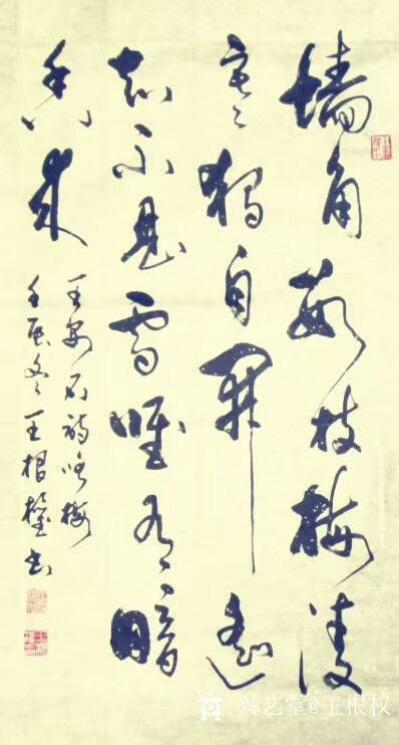 墙角数枝梅凌
寒独自開遥
知不見雪唯有暗
香来
王安石诗咏梅
壬辰冬王根權书
兴艺堂@王根权